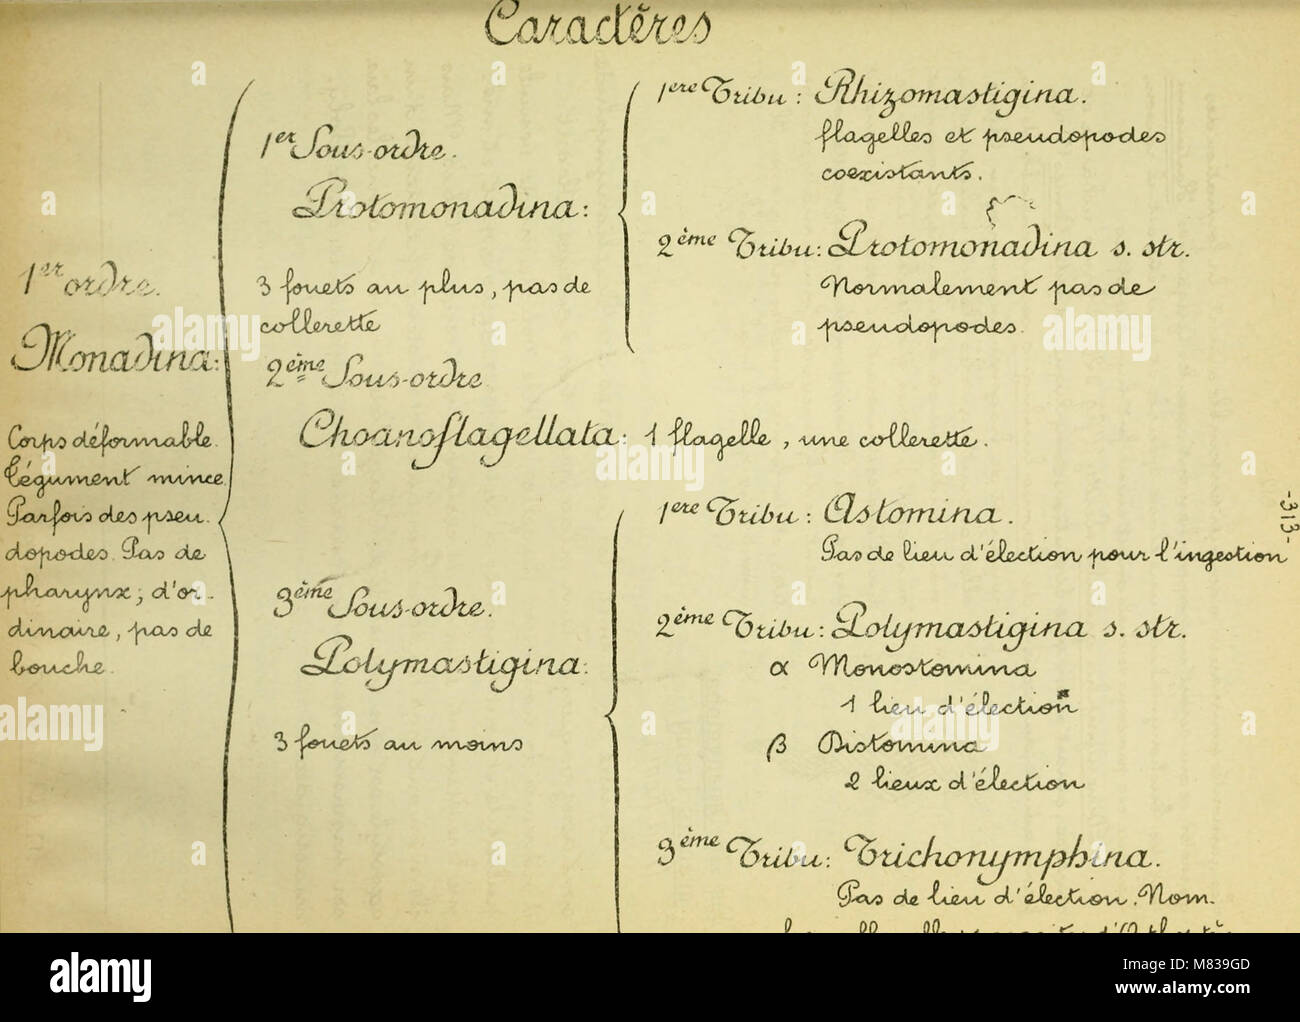 Caractères
1er ordre.
Monadina:
Corps déformable.
Tégument mince
Parfois des pseu-
dopodes. Pas de
pharynx; d'or-
dinaire, pas de
bouche.
1er Sous-ordre.
Protomonadina:
3 fouets au plus, pas de
collerette
1ere Tribu: Rhizomastigina.
flagelles et pseudopodes
coexistants.
2ème Tribu: Protomonadina s. str.
Normalement pas de
pseudopodes.
2ème Sous-ordre
Choanoflagellata: 1 flagelle, une collerette.
3ème Sous-ordre.
Polymastigina:
3 fouets au moins
1ere Tribu: Astomina.
Pas de lieu d'élection pour l'ingestion
2ème Tribu: Polymastigina s. str.
α Monostomina
1 lieu d'élection
β Distomina
2 lieux d'élection
3ème Tribu: Trichonymphina.
Pas de lieu d'élection. Nom-
-313-
alamy
Image ID: M839GD
www.alamy.com